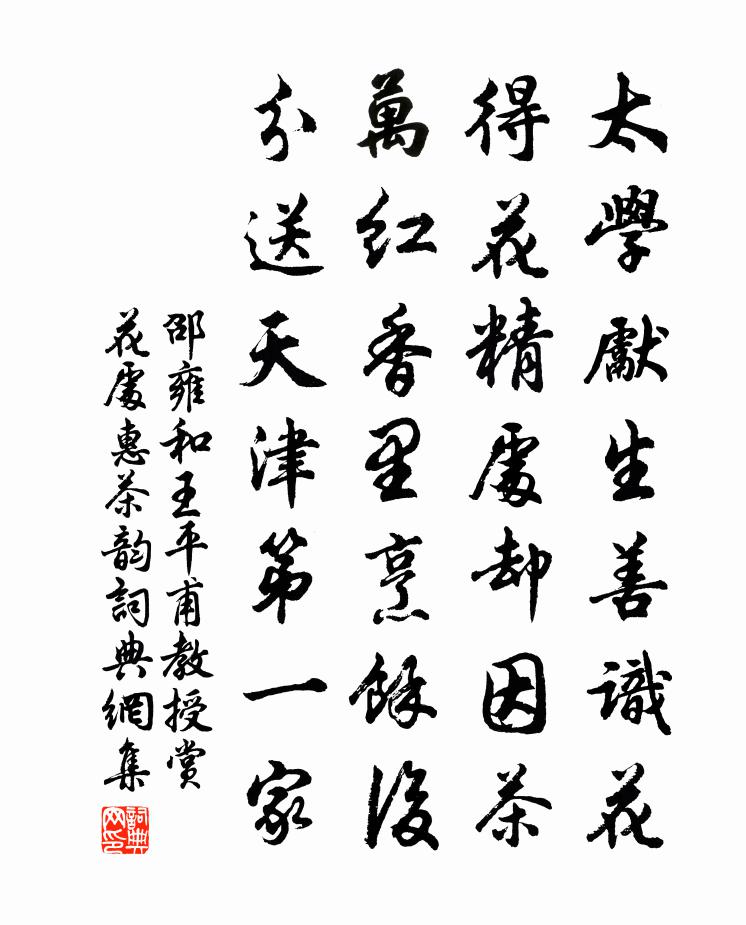 太學獻生善識花
得花精處却因茶
萬紅香里烹餘後
分送天津第一家
邵雍和王平甫教授赏
花處惠茶韵詞典網集
詞典网印